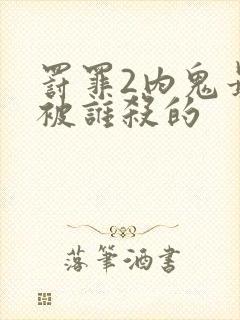 罸罪2内鬼是
被誰殺的
落筆酒書